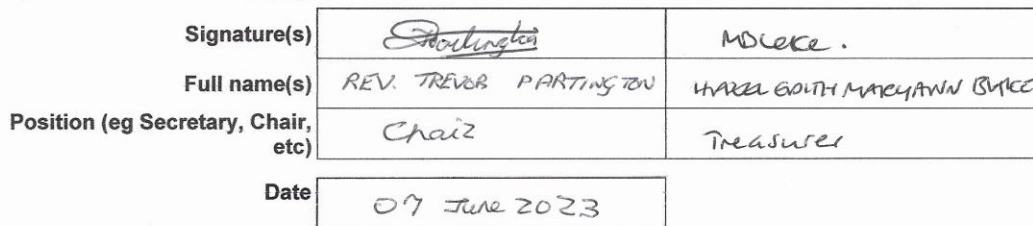 Signature(s)
Full name(s) REV. TREVOR PARTINGTON EDITH MARYANN
Position (eg Secretary, Chair, Chair Treasurer
etc)
Date 07 June 2023